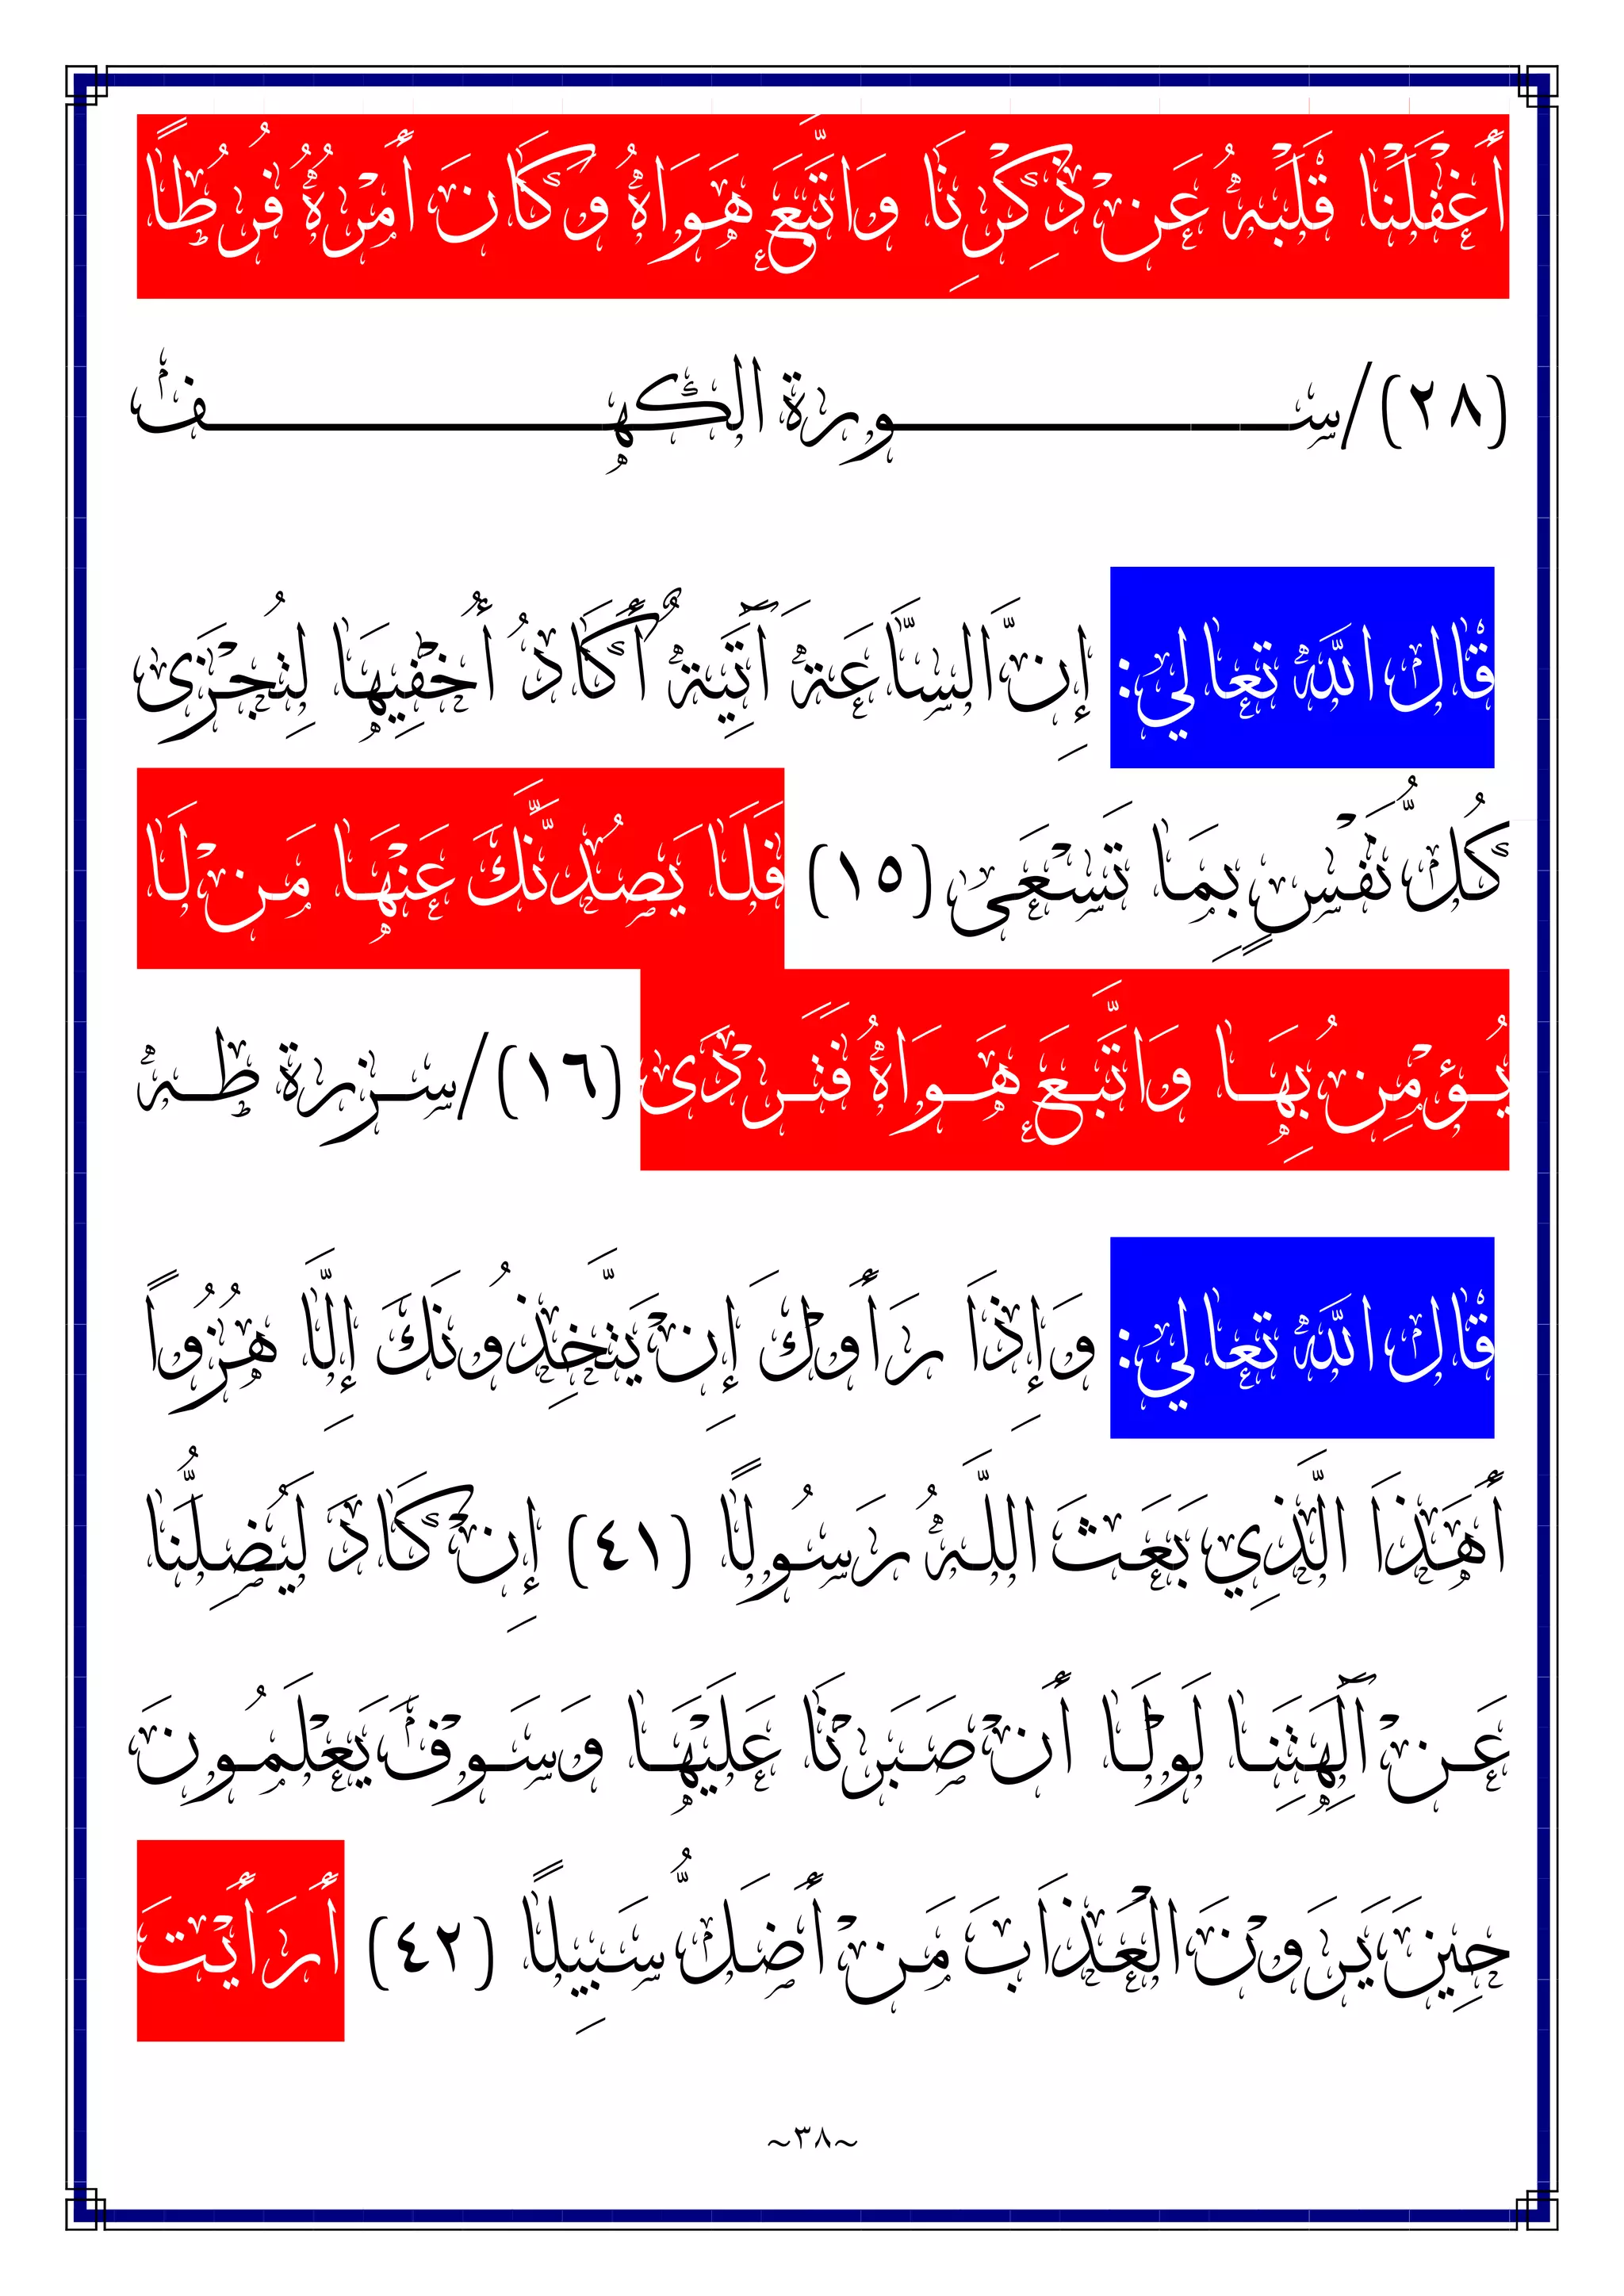 أَغْفَلْنَا قَلْبَهُ عَنْ ذِكْرِنَا وَاتَّبَعَ هَوَاهُ وَكَانَ أَمْرُهُ فُرُطًا
(٢٨)/ســورة الكهــف
قال الله تعالي: إِنَّ السَّاعَةَ آَتِيَةٌ أَكَادُ أُخْفِيهَا لِتُجْزَى
كُلُّ نَفْسٍ بِمَا تَسْعَى (١٥) فَلَا يَصُدَّنَّكَ عَنْهَا مَنْ لَا
يُؤْمِنُ بِهَا وَاتَّبَعَ هَوَاهُ فَتَرْدَى (١٦)/سزرة طه
قال الله تعالي: وَإِذَا رَأَوْكَ إِنْ يَتَّخِذُونَكَ إِلَّا هُزُوًا
أَهَذَا الَّذِي بَعَثَ اللَّهُ رَسُولًا (٤١) إِنْ كَادَ لَيُضِلُّنَا
عَنْ آَلِهَتِنَا لَوْلَا أَنْ صَبَرْنَا عَلَيْهَا وَسَوْفَ يَعْلَمُونَ
حِينَ يَرَوْنَ الْعَذَابَ مَنْ أَضَلُّ سَبِيلًا (٤٢) أَرَأَيْتَ
~٣٨~